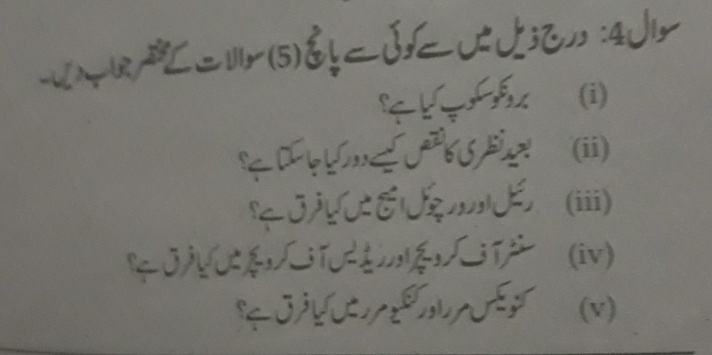 سوال 4: درج ذیل میں سے کوئی سے پانچ (5) سوالات کے مختصر جواب دیں۔
(i) برونکوسکوپ کیا ہے؟
(ii) بعید نظری کا نقص کیسے دور کیا جا سکتا ہے؟
(iii) رئیل اور ورچوئل امیج میں کیا فرق ہے؟
(iv) سنٹر آف کرویچر اور ریڈیس آف کرویچر میں کیا فرق ہے؟
(v) کنویکس مرر اور کنکیو مرر میں کیا فرق ہے؟